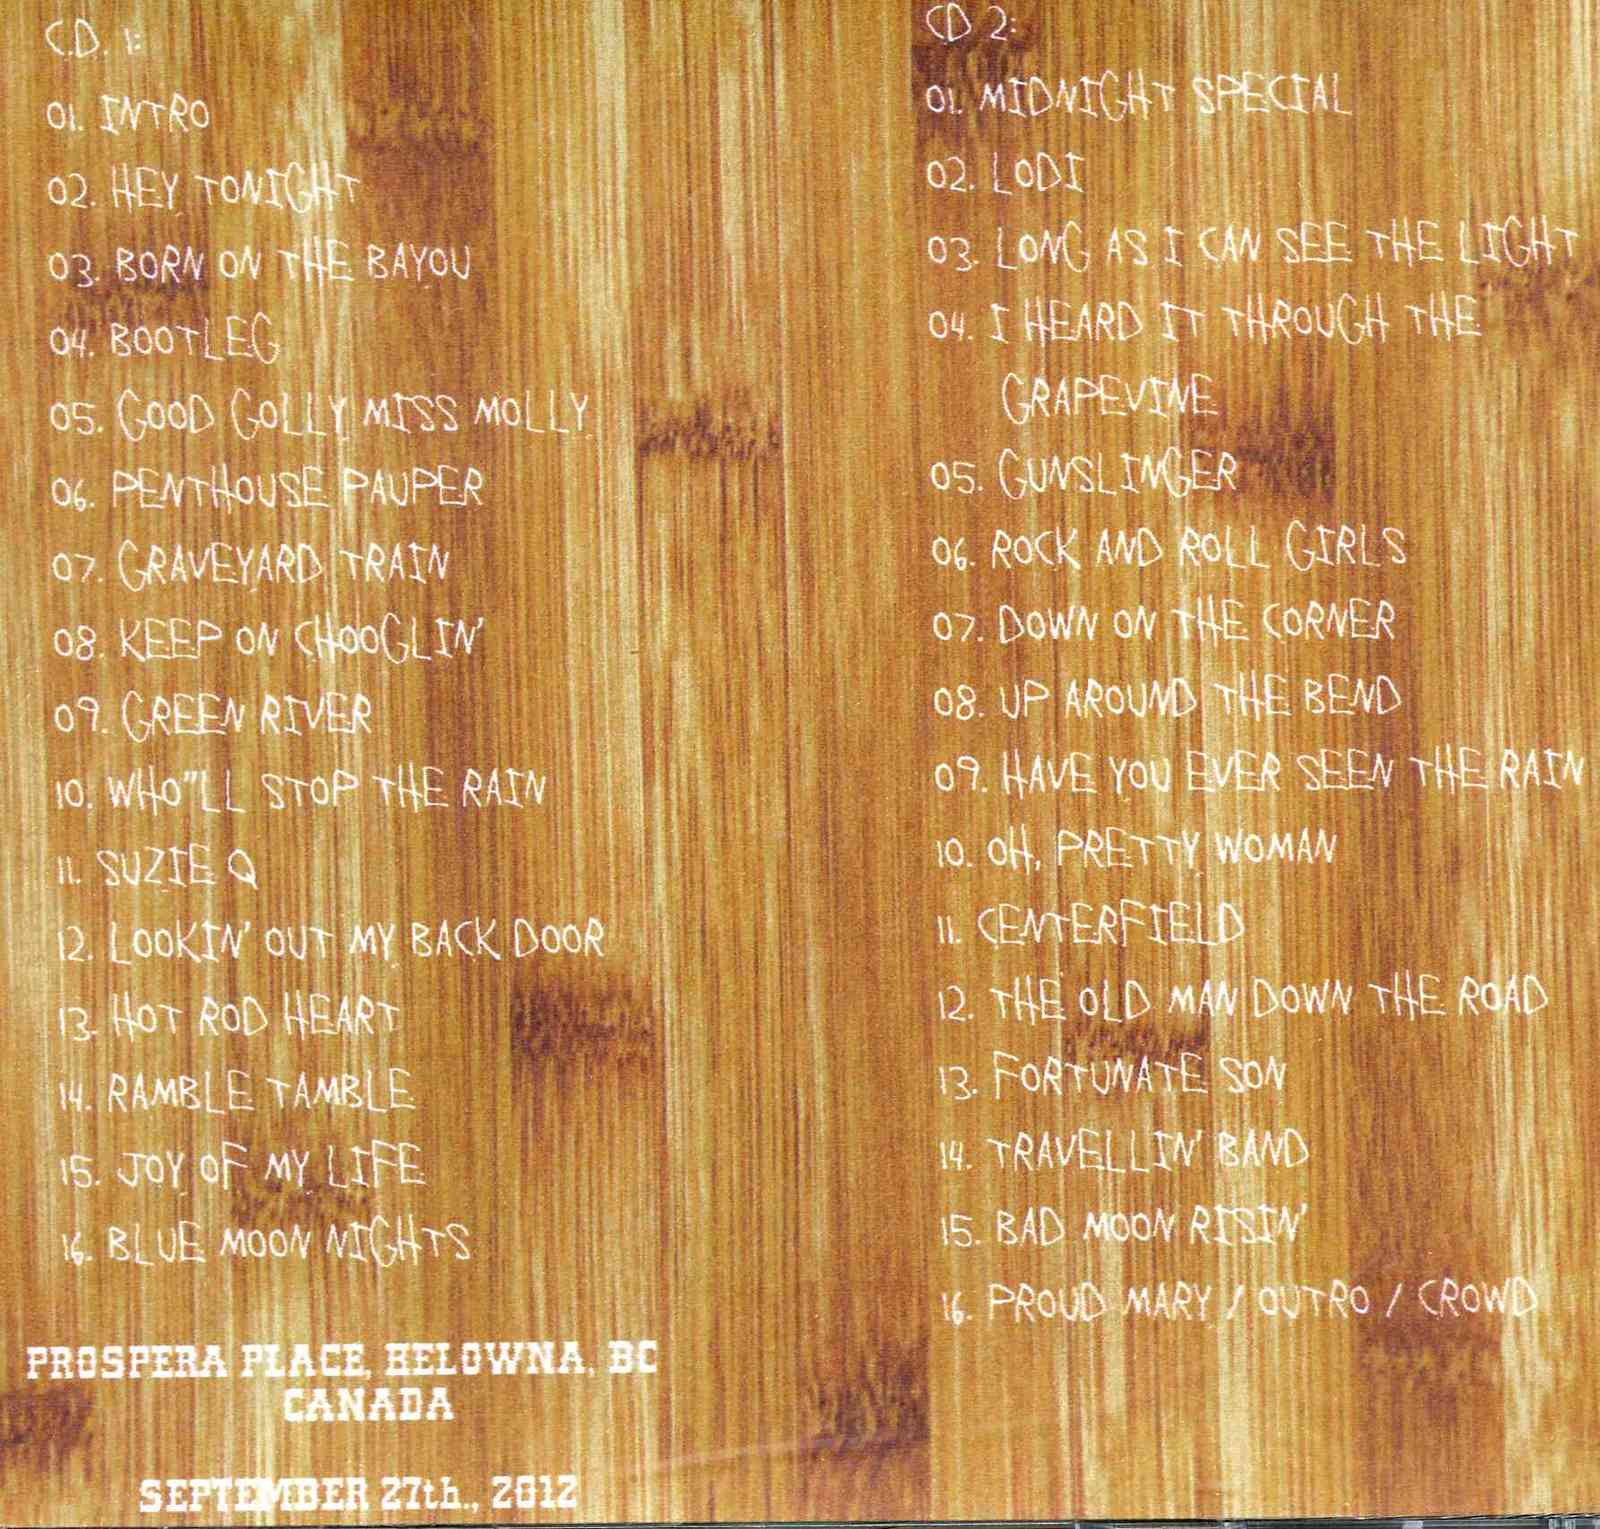 C.D. 1:
01. INTRO
02. HEY TONIGHT
03. BORN ON THE BAYOU
04. BOOTLEG
05. GOOD GOLLY MISS MOLLY
06. PENTHOUSE PAUPER
07. GRAVEYARD TRAIN
08. KEEP ON CHOOGLIN'
09. GREEN RIVER
10. WHO"LL STOP THE RAIN
11. SUZIE Q
12. LOOKIN' OUT MY BACK DOOR
13. HOT ROD HEART
14. RAMBLE TAMBLE
15. JOY OF MY LIFE
16. BLUE MOON NIGHTS
PROSPERA PLACE, HELOWNA, BC
CANADA
SEPTEMBER 27th., 2012
CD 2:
01. MIDNIGHT SPECIAL
02. LODI
03. LONG AS I CAN SEE THE LIGHT
04. I HEARD IT THROUGH THE
GRAPEVINE
05. GUNSLINGER
06. ROCK AND ROLL GIRLS
07. DOWN ON THE CORNER
08. UP AROUND THE BEND
09. HAVE YOU EVER SEEN THE RAIN
10. OH, PRETTY WOMAN
11. CENTERFIELD
12. THE OLD MAN DOWN THE ROAD
13. FORTUNATE SON
14. TRAVELLIN' BAND
15. BAD MOON RISIN'
16. PROUD MARY / OUTRO / CROWD